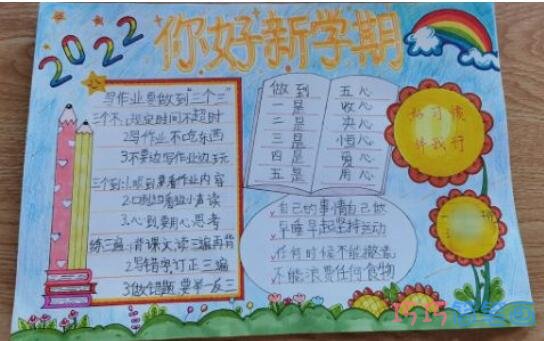 2022
你好新学期
写作业要做到"三个三"
三个不:1.规定时间不超时
2写作业不吃东西
3不要边写作业边玩
三个到:1.眼到要看作业内容
2口到:边看边小声读
3.心到要用心思考
练三遍:1背课文读三遍再背
2写错字订正三遍
3做错题要举一反三
做到 五心
一是 收心
二是 决心
三是 恒心
四是 爱心
五是 用心
好习惯
伴我行
自己的事情自己做
早睡早起坚持运动
任何时候不能撒谎
不能浪费任何食物
1515